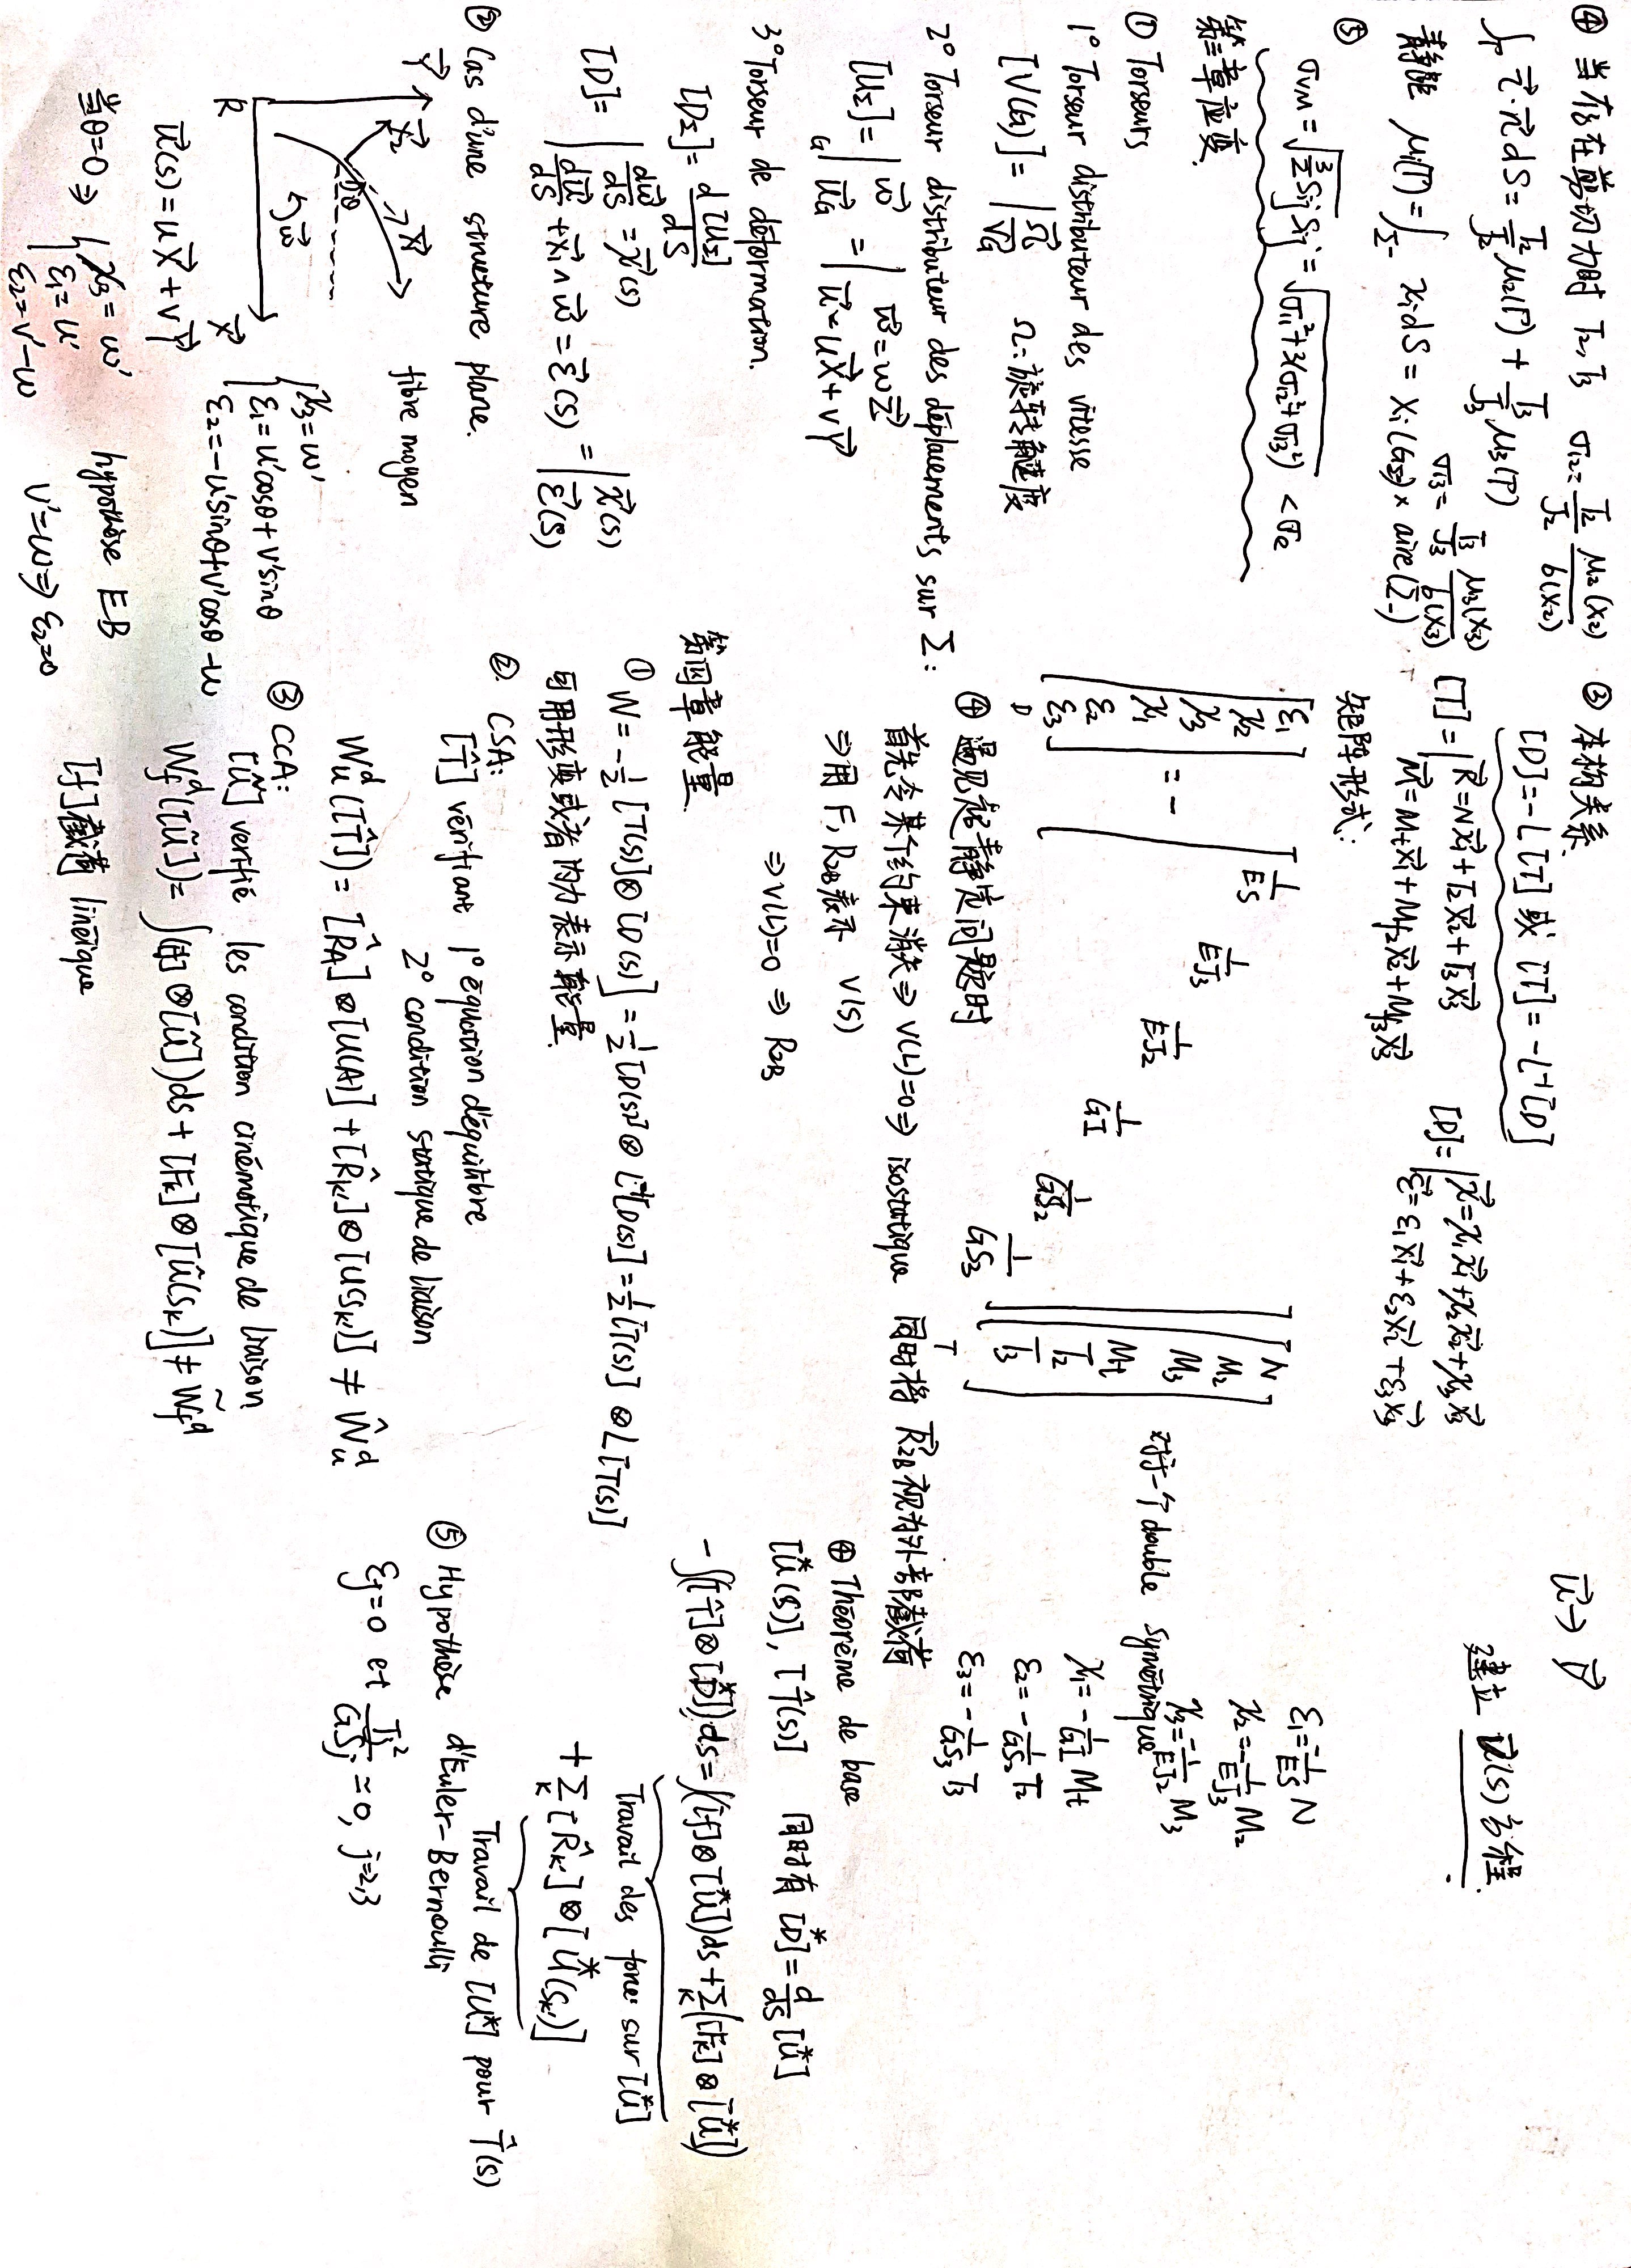 ④ 当存在剪切力时 T₂, T₃ σ₁₂ = T₂/J₂ μ₂(x₂)/b(x₂)
∫_Γ τ⃗·n⃗ dS = T₂/J₂ μ₂(Γ) + T₃/J₃ μ₃(Γ)
σ₁₃ = T₃/J₃ μ₃(x₃)/b(x₃)
静距 μᵢ(Γ) = ∫_Σ- xᵢdS = Xᵢ(G_Σ-) × aire(Σ₋)
⑤
σ_VM = √(3/2 Sᵢⱼ Sᵢⱼ) = √(σ₁₁² + 3(σ₁₂² + σ₁₃²)) < σe
第三章 应变.
① Torseurs
1° Torseur distributeur des vitesse
[V(G)] = | Ω⃗ / V⃗_G Ω: 旋转角速度
2° Torseur distributeur des déplacements sur Σ:
[U_Σ] = _G| ω⃗ / u⃗_G = | ω⃗ = ωZ⃗ / u⃗ = uX⃗ + vY⃗
3° Torseur de déformation.
[D_Σ] = d[U_Σ]/dS
[D] = | dω⃗/dS = χ⃗(s) / du⃗/dS + x⃗₁ ∧ ω⃗ = ε⃗(s) = | χ⃗(s) / ε⃗(s)
② Cas d'une structure plane.
Y⃗ x⃗₂ x⃗₁ fibre moyen
θ
ω⃗
R X⃗
χ₃ = ω'
ε₁ = u'cosθ + v'sinθ
ε₂ = -u'sinθ + v'cosθ - ω
u⃗(s) = uX⃗ + vY⃗
当θ=0 ⇒ { χ₃ = ω'
ε₁ = u'
ε₂ = v' - ω
hypothèse EB
v' = ω ⇒ ε₂ = 0
③ 本构关系.
[D] = -L[T] 或 [T] = -L⁻¹[D]
[T] = | R⃗ = Nx⃗₁ + T₂x⃗₂ + T₃x⃗₃ / M⃗ = Mt x⃗₁ + Mf₂x⃗₂ + Mf₃x⃗₃
[D] = | χ⃗ = χ₁x⃗₁ + χ₂x⃗₂ + χ₃x⃗₃ / ε⃗ = ε₁x⃗₁ + ε₂x⃗₂ + ε₃x⃗₃
矩阵形式:
[ε₁ χ₂ χ₃ χ₁ ε₂ ε₃] = - [1/ES 1/EJ₃ 1/EJ₂ 1/GI 1/GS₂ 1/GS₃] [N M₂ M₃ Mt T₂ T₃]
D T
对于一个 double symétrique
④ 遇见超静定问题时
首先令某个约束消失 ⇒ V(L)=0 ⇒ isostatique 同时将 R⃗₂B 视为外部截荷
⇒ 用 F, R₂B 表示 V(s)
⇒ V(L)=0 ⇒ R₂B
第四章 能量.
① W = -1/2 [T(s)] ⊗ [D(s)] = 1/2 [D(s)] ⊗ L⁻¹[D(s)] = 1/2 [T(s)] ⊗ L[T(s)]
可用形变或者内力表示能量.
②. CSA:
[T̂] vérifiant 1° équation d'équilibre
2° condition statique de liaison
W_u^d([T̂]) = [R̂_A] ⊗ [U(A)] + [R̂_k'] ⊗ [U(S_k')] ≠ Ŵ_u^d
③ CCA:
[ũ] verifié les condition cinématique de liaison
W_f^d([ũ]) = ∫([f] ⊗ [ũ])ds + [F_k] ⊗ [û(S_k)] ≠ W̃_f^d
[f] 截荷 linéique
u⃗ → D⃗
建立 v⃗(s) 方程.
ε₁ = -1/ES N
χ₂ = -1/EJ₃ M₂
χ₃ = -1/EJ₂ M₃
χ₁ = -1/GI Mt
ε₂ = -1/GS₂ T₂
ε₃ = -1/GS₃ T₃
④ Théorème de base
[U*(s)], [T̂(s)] 同时有 [D*] = d/ds [U*]
-∫([T̂] ⊗ [D*])ds = ∫([f] ⊗ [U*])ds + Σ_K([F_k] ⊗ [U*])
Travail des force sur [U*]
+ Σ_K [R̂_K'] ⊗ [U*(S_k')]
Travail de [U*] pour T̂(s)
⑤ Hypothèse d'Euler-Bernoulli
εj = 0 et Tj²/GSj ≃ 0, j=2,3